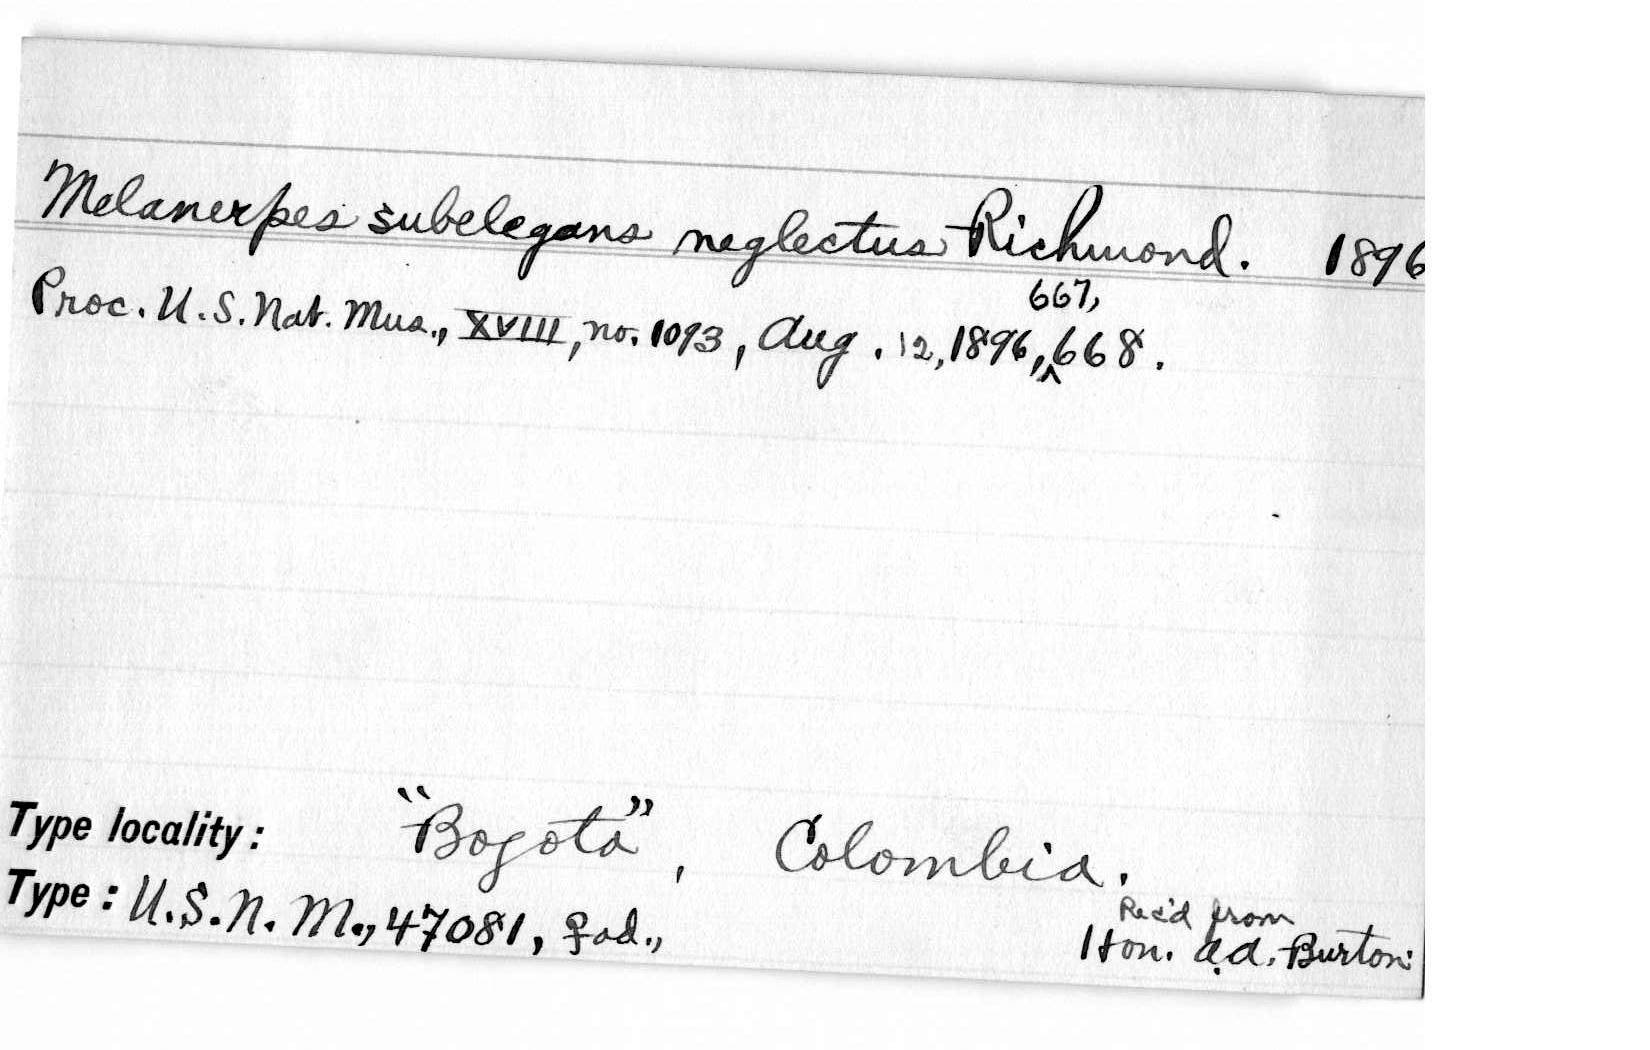 Melanerpes subelegans neglectus Richmond. 1896
667,
Proc. U.S. Nat. Mus., XVIII, no. 1093, Aug. 12, 1896, ^ 668.
Type locality: "Bogotá", Colombia.
Rec'd from
Type: U.S.N.M., 47081, ♀ ad., Hon. A.A. Burton.